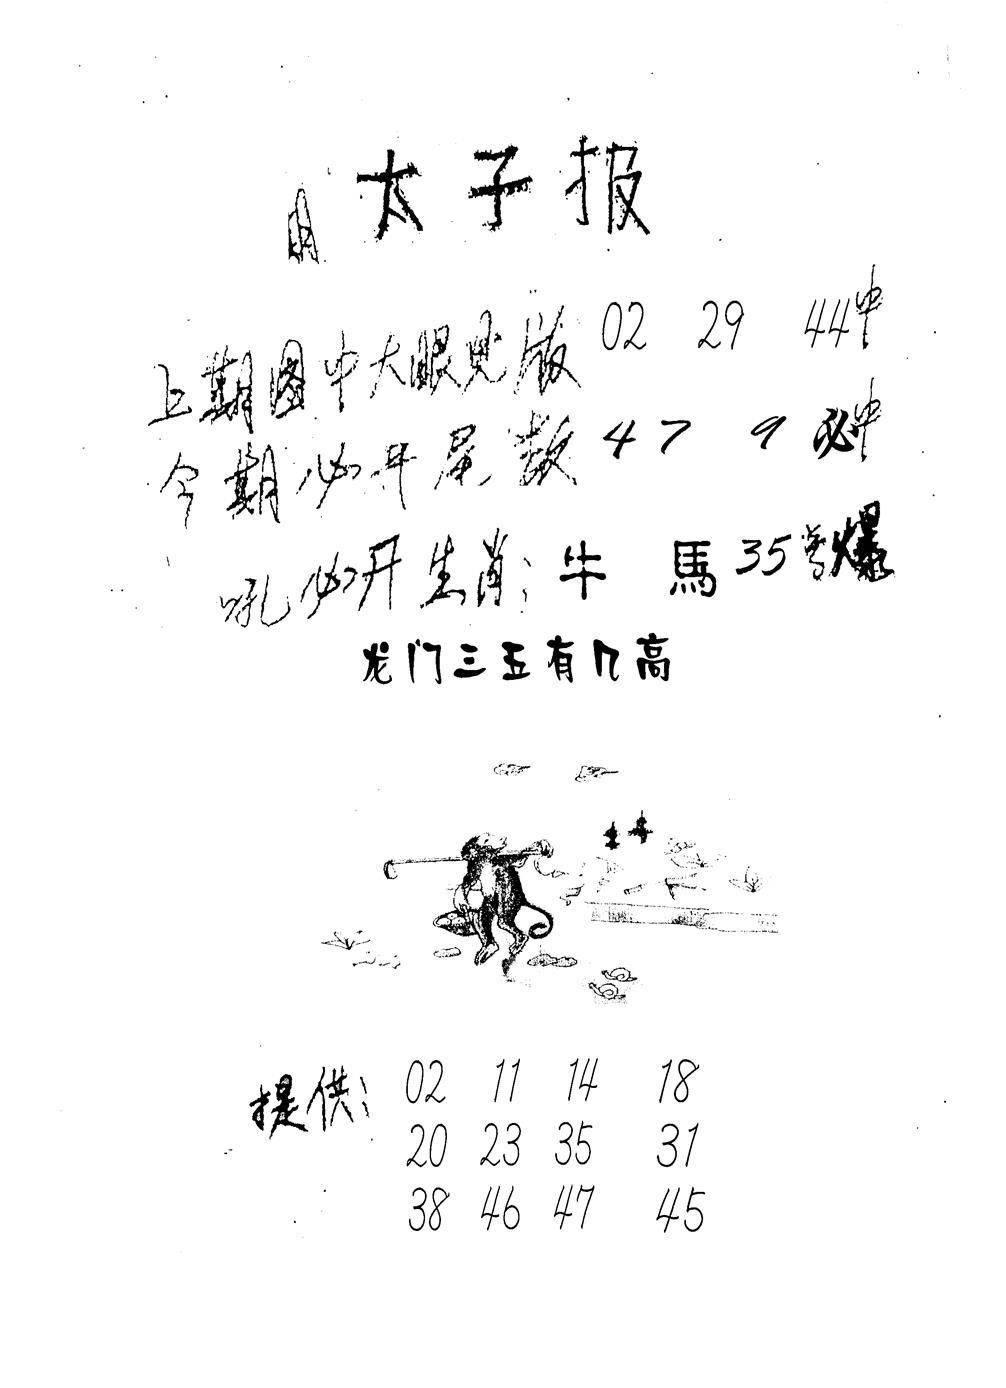 太子报
上期图中大眼见版 02 29 44中
今期必开尾数 4 7 9 必中
吼必开生肖: 牛 馬 35号爆
龙门三五有几高
提供: 02 11 14 18
20 23 35 31
38 46 47 45